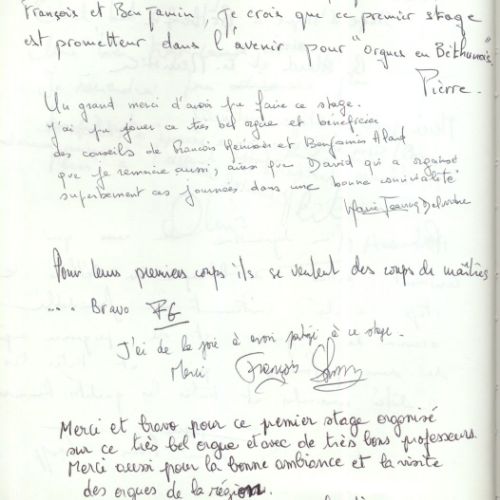 François et Benjamin, je crois que ce premier stage
est prometteur dans l'avenir pour "orgues en Béthunois"
Pierre.
Un grand merci d'avoir pu faire ce stage.
J'ai pu jouer ce très bel orgue et bénéficier
des conseils de François et Benjamin Alard
que je remercie aussi, ainsi que David qui a organisé
superbement ces journées dans une bonne convivialité
Marie Jeanne
Pour leurs premiers corps ils se veulent des corps de maîtres
... Bravo FG
J'ai de la joie à avoir partagé à ce stage.
Merci François
Merci et bravo pour ce premier stage organisé
sur ce très bel orgue et avec de très bons professeurs.
Merci aussi pour la bonne ambiance et la visite
des orgues de la région.